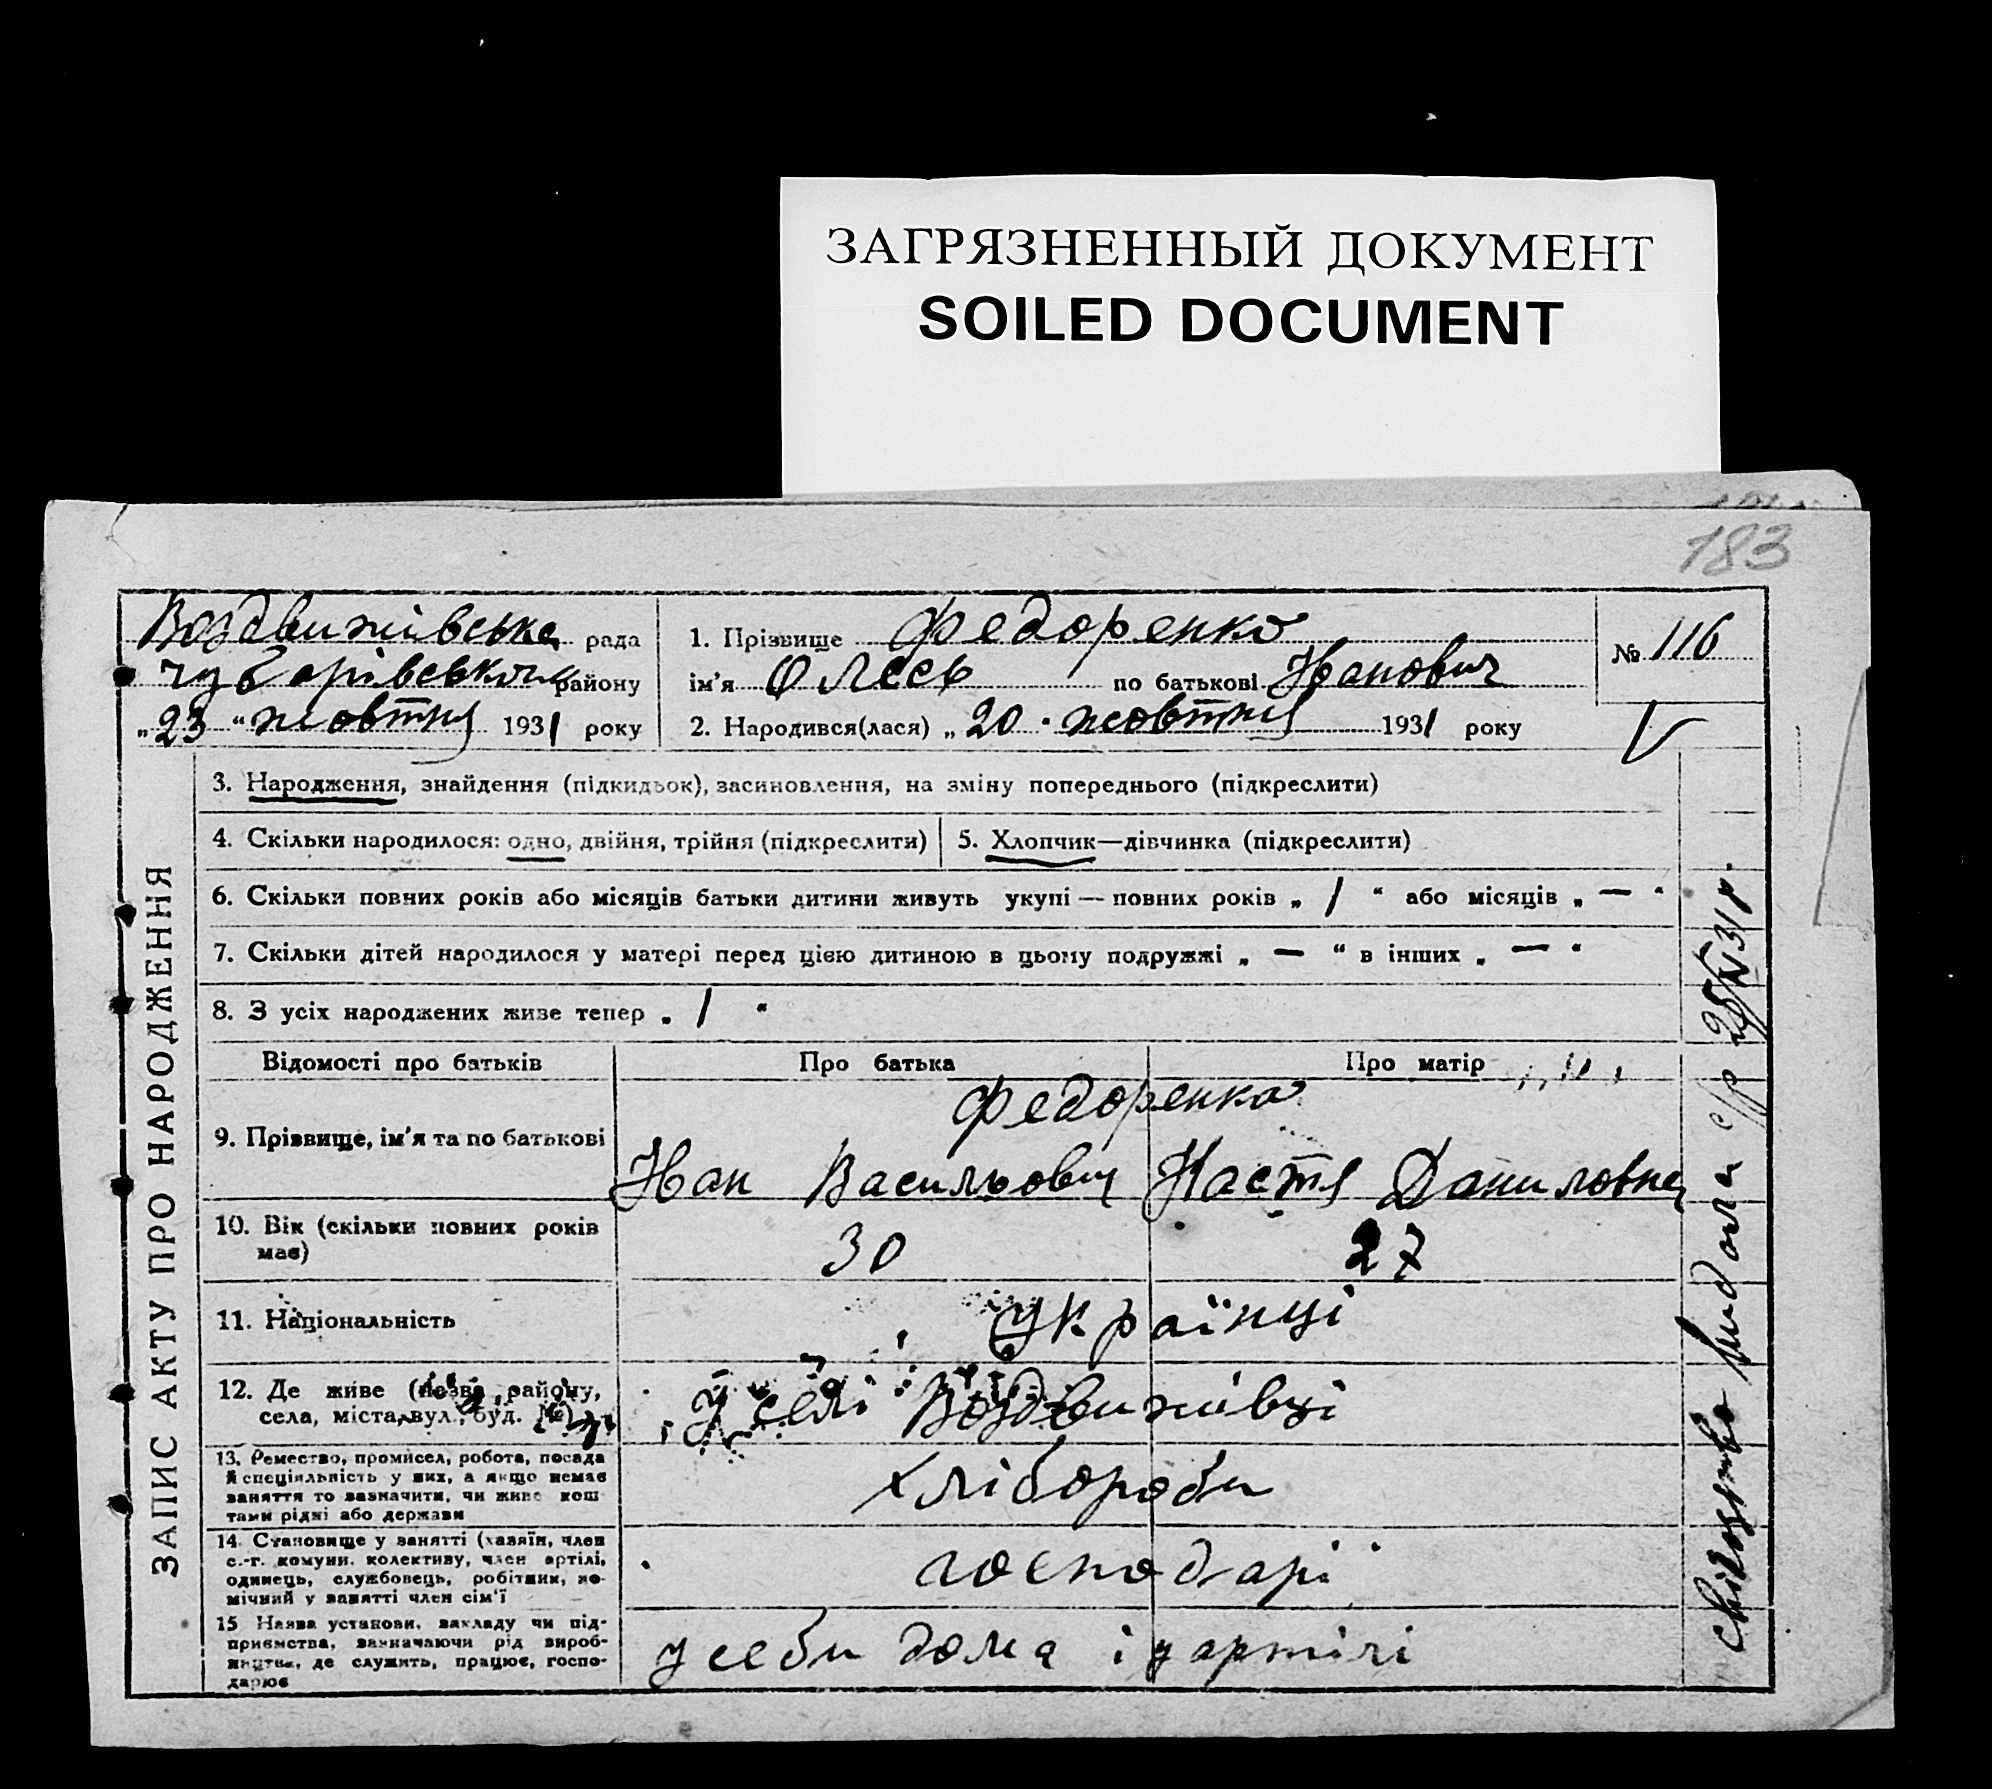 ЗАГРЯЗНЕННЫЙ ДОКУМЕНТ
SOILED DOCUMENT
183
Воздвижівська рада
Чубарівського району
„23“ жовтня 1931 року
1. Прізвище Федоренко
ім'я Олесь по батькові Іванович
2. Народився(лася) „20 " жовтня 1931 року
№ 116
ЗАПИС АКТУ ПРО НАРОДЖЕННЯ
3. Народження, знайдення (підкидьок), засиновлення, на зміну попереднього (підкреслити)
4. Скільки народилося: одно, двійня, трійня (підкреслити)
5. Хлопчик—дівчинка (підкреслити)
6. Скільки повних років або місяців батьки дитини живуть укупі — повних років „ 1 “ або місяців „ — “
7. Скільки дітей народилося у матері перед цією дитиною в цьому подружжі „ — “ в інших „ — “
8. З усіх народжених живе тепер „ 1 “
Відомості про батьків
Про батька
Про матір
9. Прізвище, ім'я та по батькові
Федоренко
Іван Васильович
Настя Даниловна
10. Вік (скільки повних років має)
30
27
11. Національність
Українці
12. Де живе (назва району,
села, міста, вул., буд. №)
У селі Воздвижівці
13. Ремество, промисел, робота, посада
й спеціяльність у них, а якщо немає
заняття то зазначити, чи живе кош-
тами рідні або держави
хлібороби
14. Становище у занятті (хазяїн, член
с.-г. комуни, колективу, член артілі,
одинець, службовець, робітник, по-
мічний у занятті член сім'ї
господарі
15 Назва установи, закладу чи під-
приємства, зазначаючи рід вироб-
ництва, де служить, працює, госпо-
дарює
у себи дома і у артілі